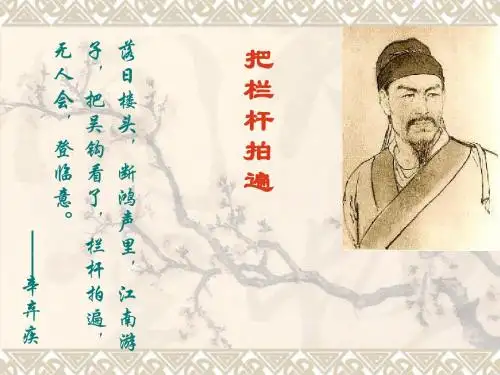 把栏杆拍遍
落日楼头，断鸿声里，江南游
子，把吴钩看了，栏杆拍遍，
无人会，登临意。
——辛弃疾